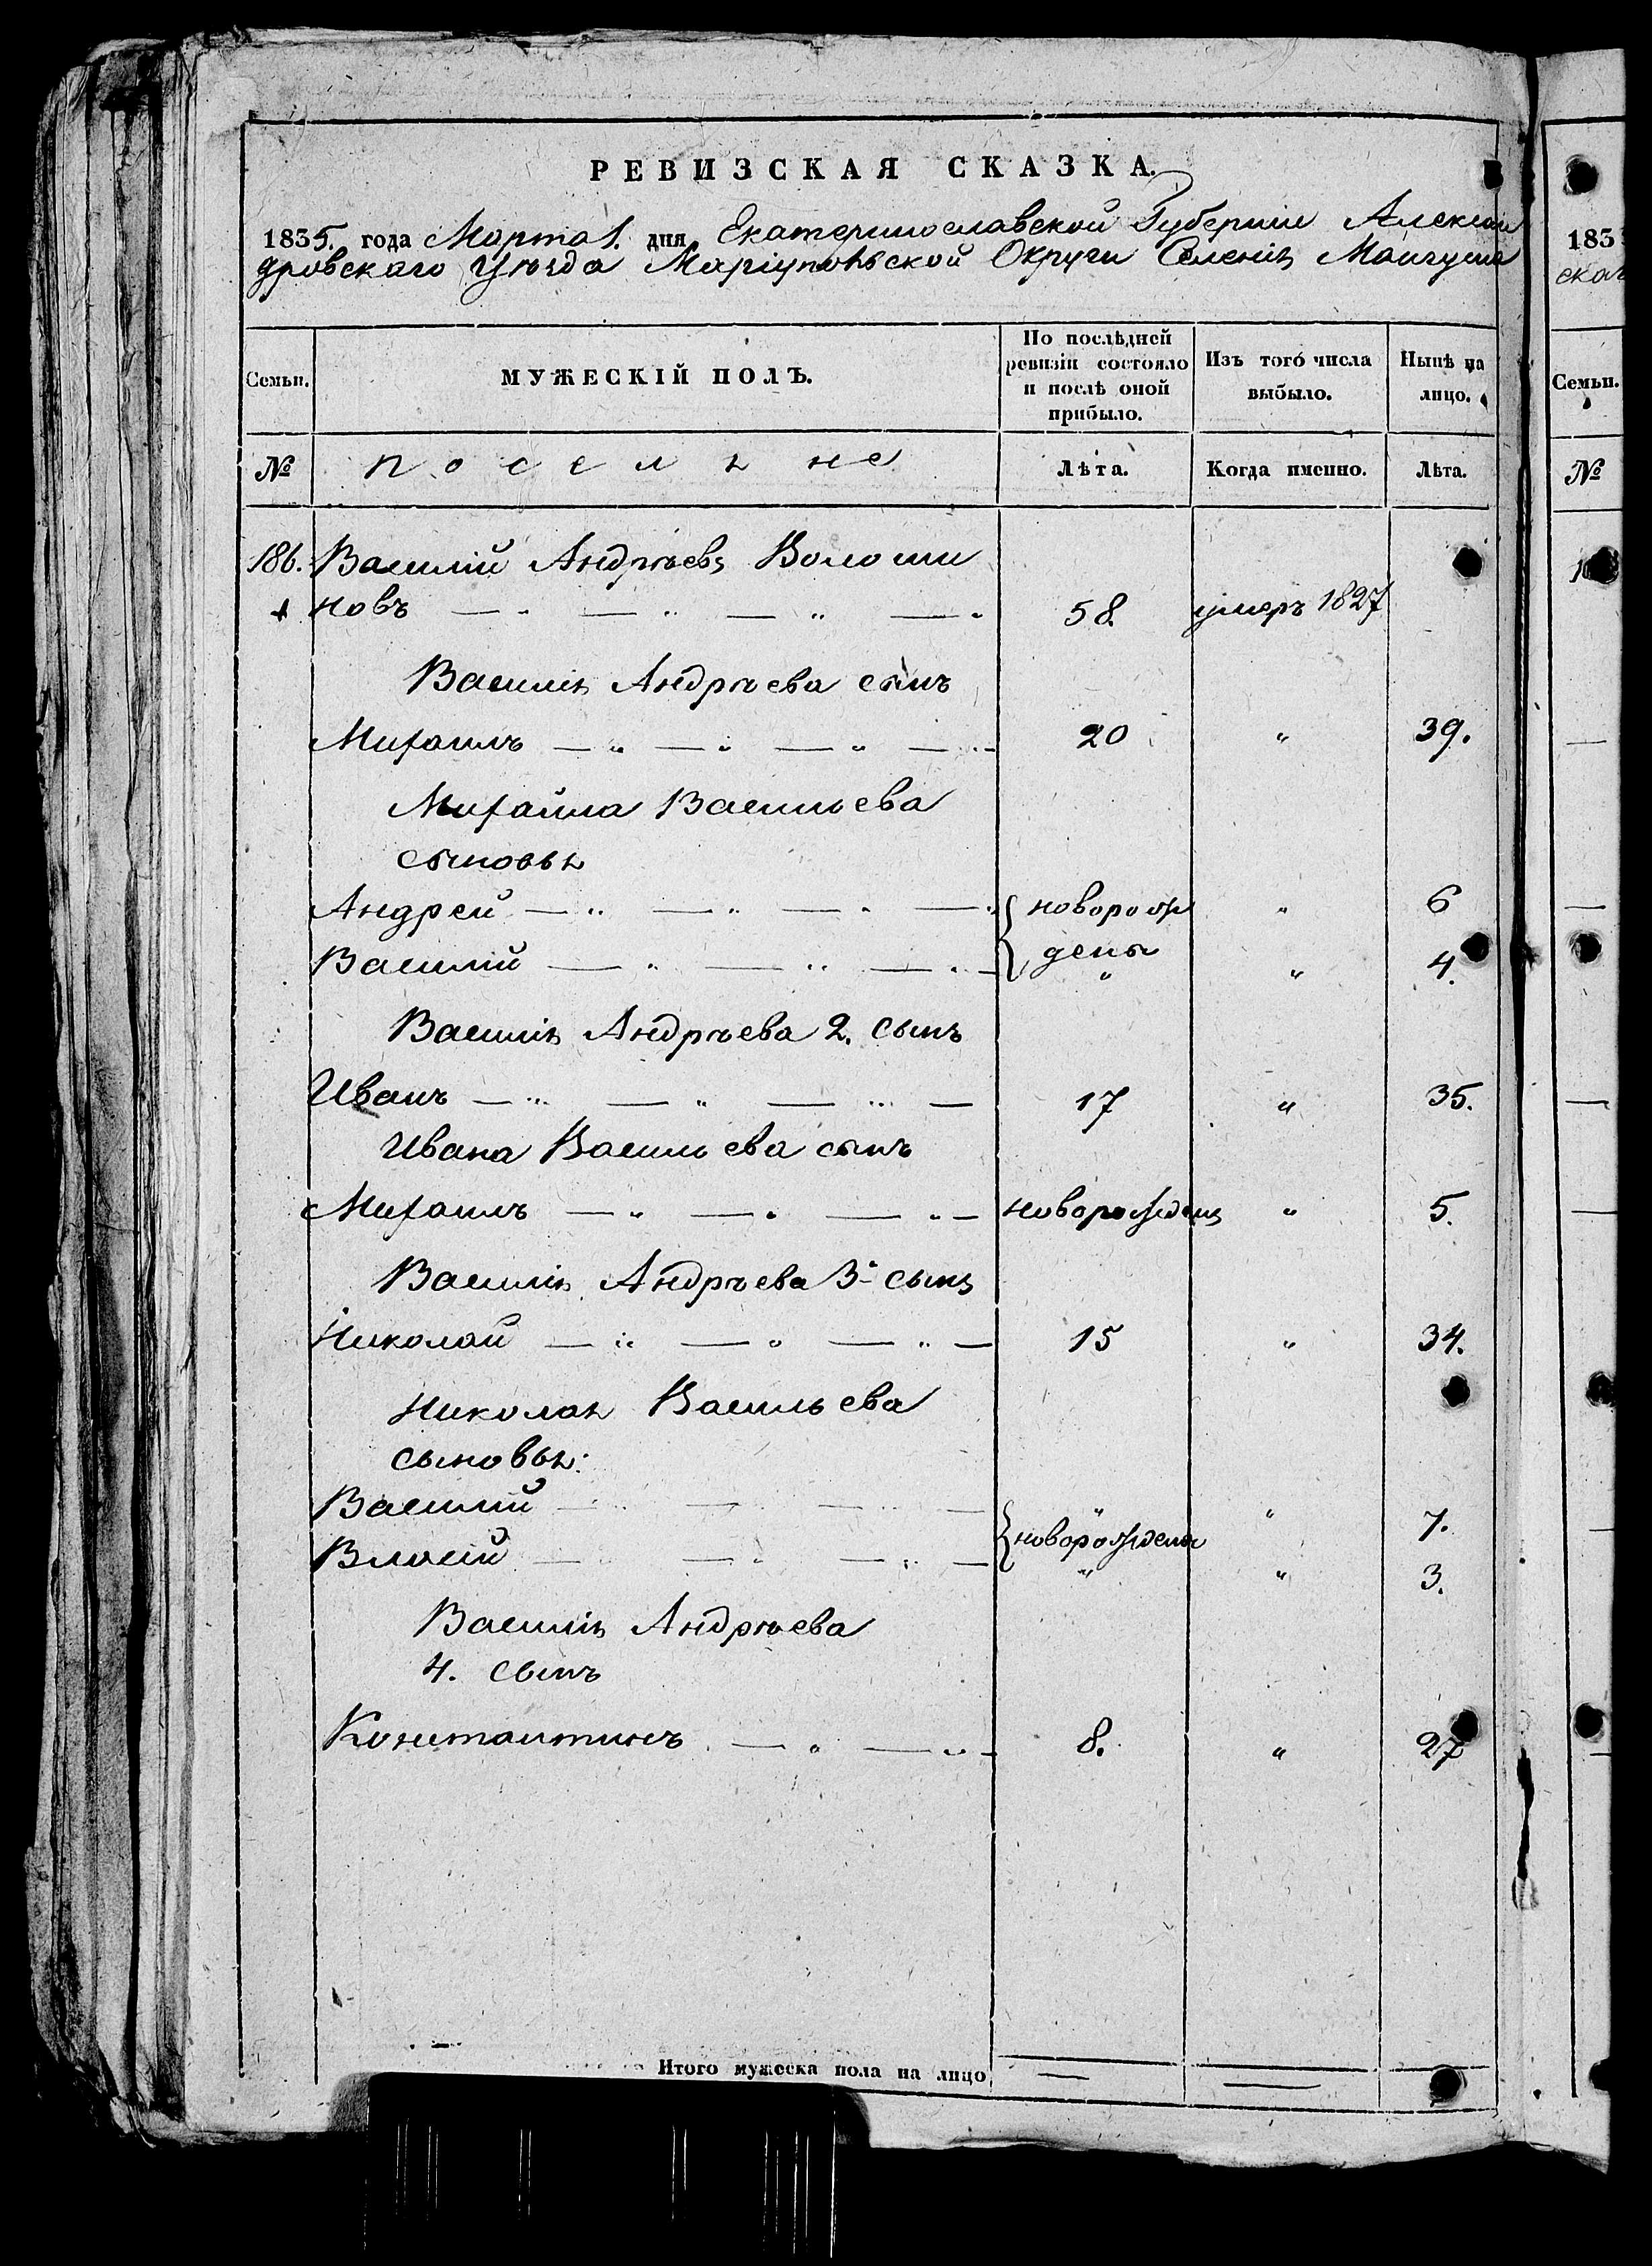 РЕВИЗСКАЯ СКАЗКА.
1835. года Марта 1. дня Екатеринославской Губерніи Алексан
дровскаго Уѣзда Маріупольской Округи Селенія Мангуша
Семьи. МУЖЕСКІЙ ПОЛЪ. По послѣдней ревизіи состояло и послѣ оной прибыло. Изъ того числа выбыло. Нынѣ на лицо.
№ поселяне Лѣта. Когда именно. Лѣта.
186. Василій Андрѣевъ Волоши
новъ — " — " — " — " 58. умеръ 1827
Василія Андрѣева сынъ
Михаилъ — " — " — " — " 20 " 39.
Михайла Васильева
сыновья
Андрей — " — " — " — " новорож " 6
Василій — " — " — " — дены " " 4.
Василія Андрѣева 2. сынъ
Иванъ — " — " — " — 17 " 35.
Ивана Васильева сынъ
Михаилъ — " — " — " — новорожденъ " 5.
Василія Андрѣева 3й сынъ
Николай — " — " — " — 15 " 34.
Николая Васильева
сыновья:
Василій — " — " — " — " " 7.
новорождены
Власій — " — " — " — " " 3.
Василія Андрѣева
4. сынъ
Константинъ — " — " — 8. " 27
Итого мужеска пола на лицо — —
183
скаг
Семьи.
№